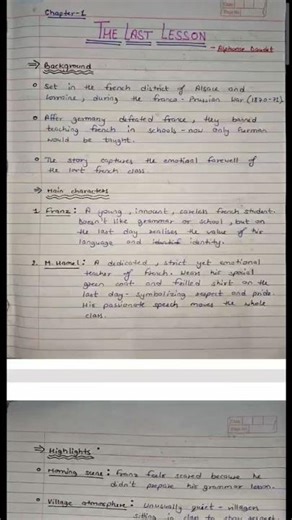 Chapter-1
THE LAST LESSON
- Alphonse Daudet
⇒ Background
○ Set in the french district of Alsace and
Lorraine, during the franco-Prussian War (1870-71).
○ After germany defeated france, they banned
teaching french in schools - now only German
would be taught.
○ The story captures the emotional farewell of
the last french class.
⇒ Main characters
1. Franz: A young, innocent, careless french student.
doesn't like grammar or school, but on
the last day realises the value of his
language and identity.
2. M. Hamel: A dedicated, strict yet emotional
teacher of french. Wears his special
green coat and frilled shirt on the
last day - symbolizing respect and pride.
His passionate speech moves the whole
class.
⇒ Highlights:
○ Morning scene: Franz feels scared because he
didn't prepare his grammar lesson.
○ Village atmosphere: Unusually quiet - villagers
sitting in class to show respect